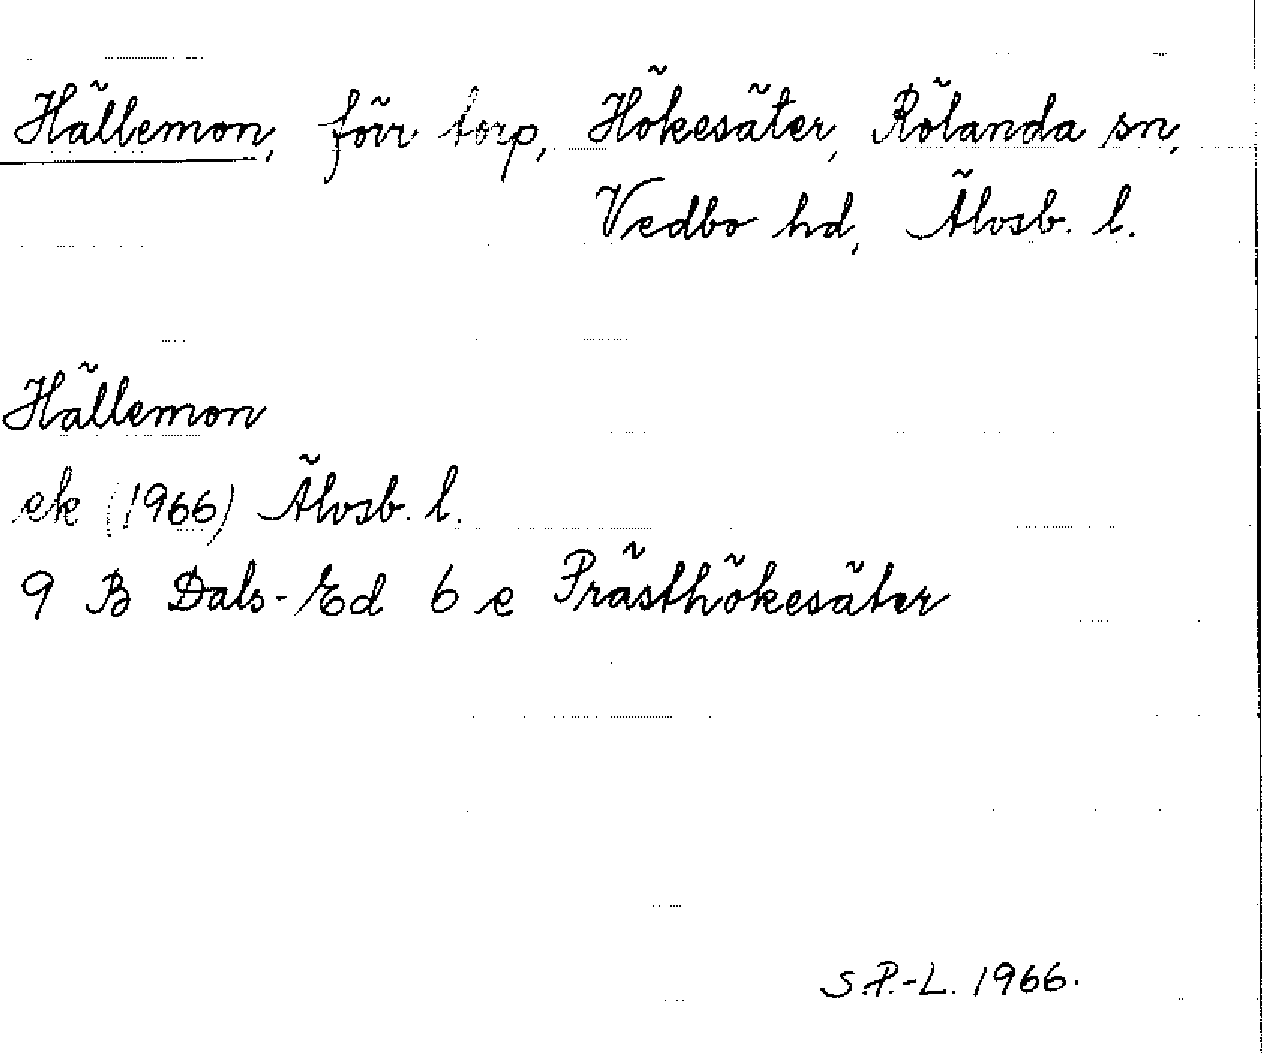 Hällemon, förr torp, Hökesäter, Rölanda sn,
Vedbo hd, Älvsb. l.
Hällemon
ek (1966) Älvsb. l.
9 B Dals-Ed 6 e Prästhökesäter
S.P.-L. 1966.